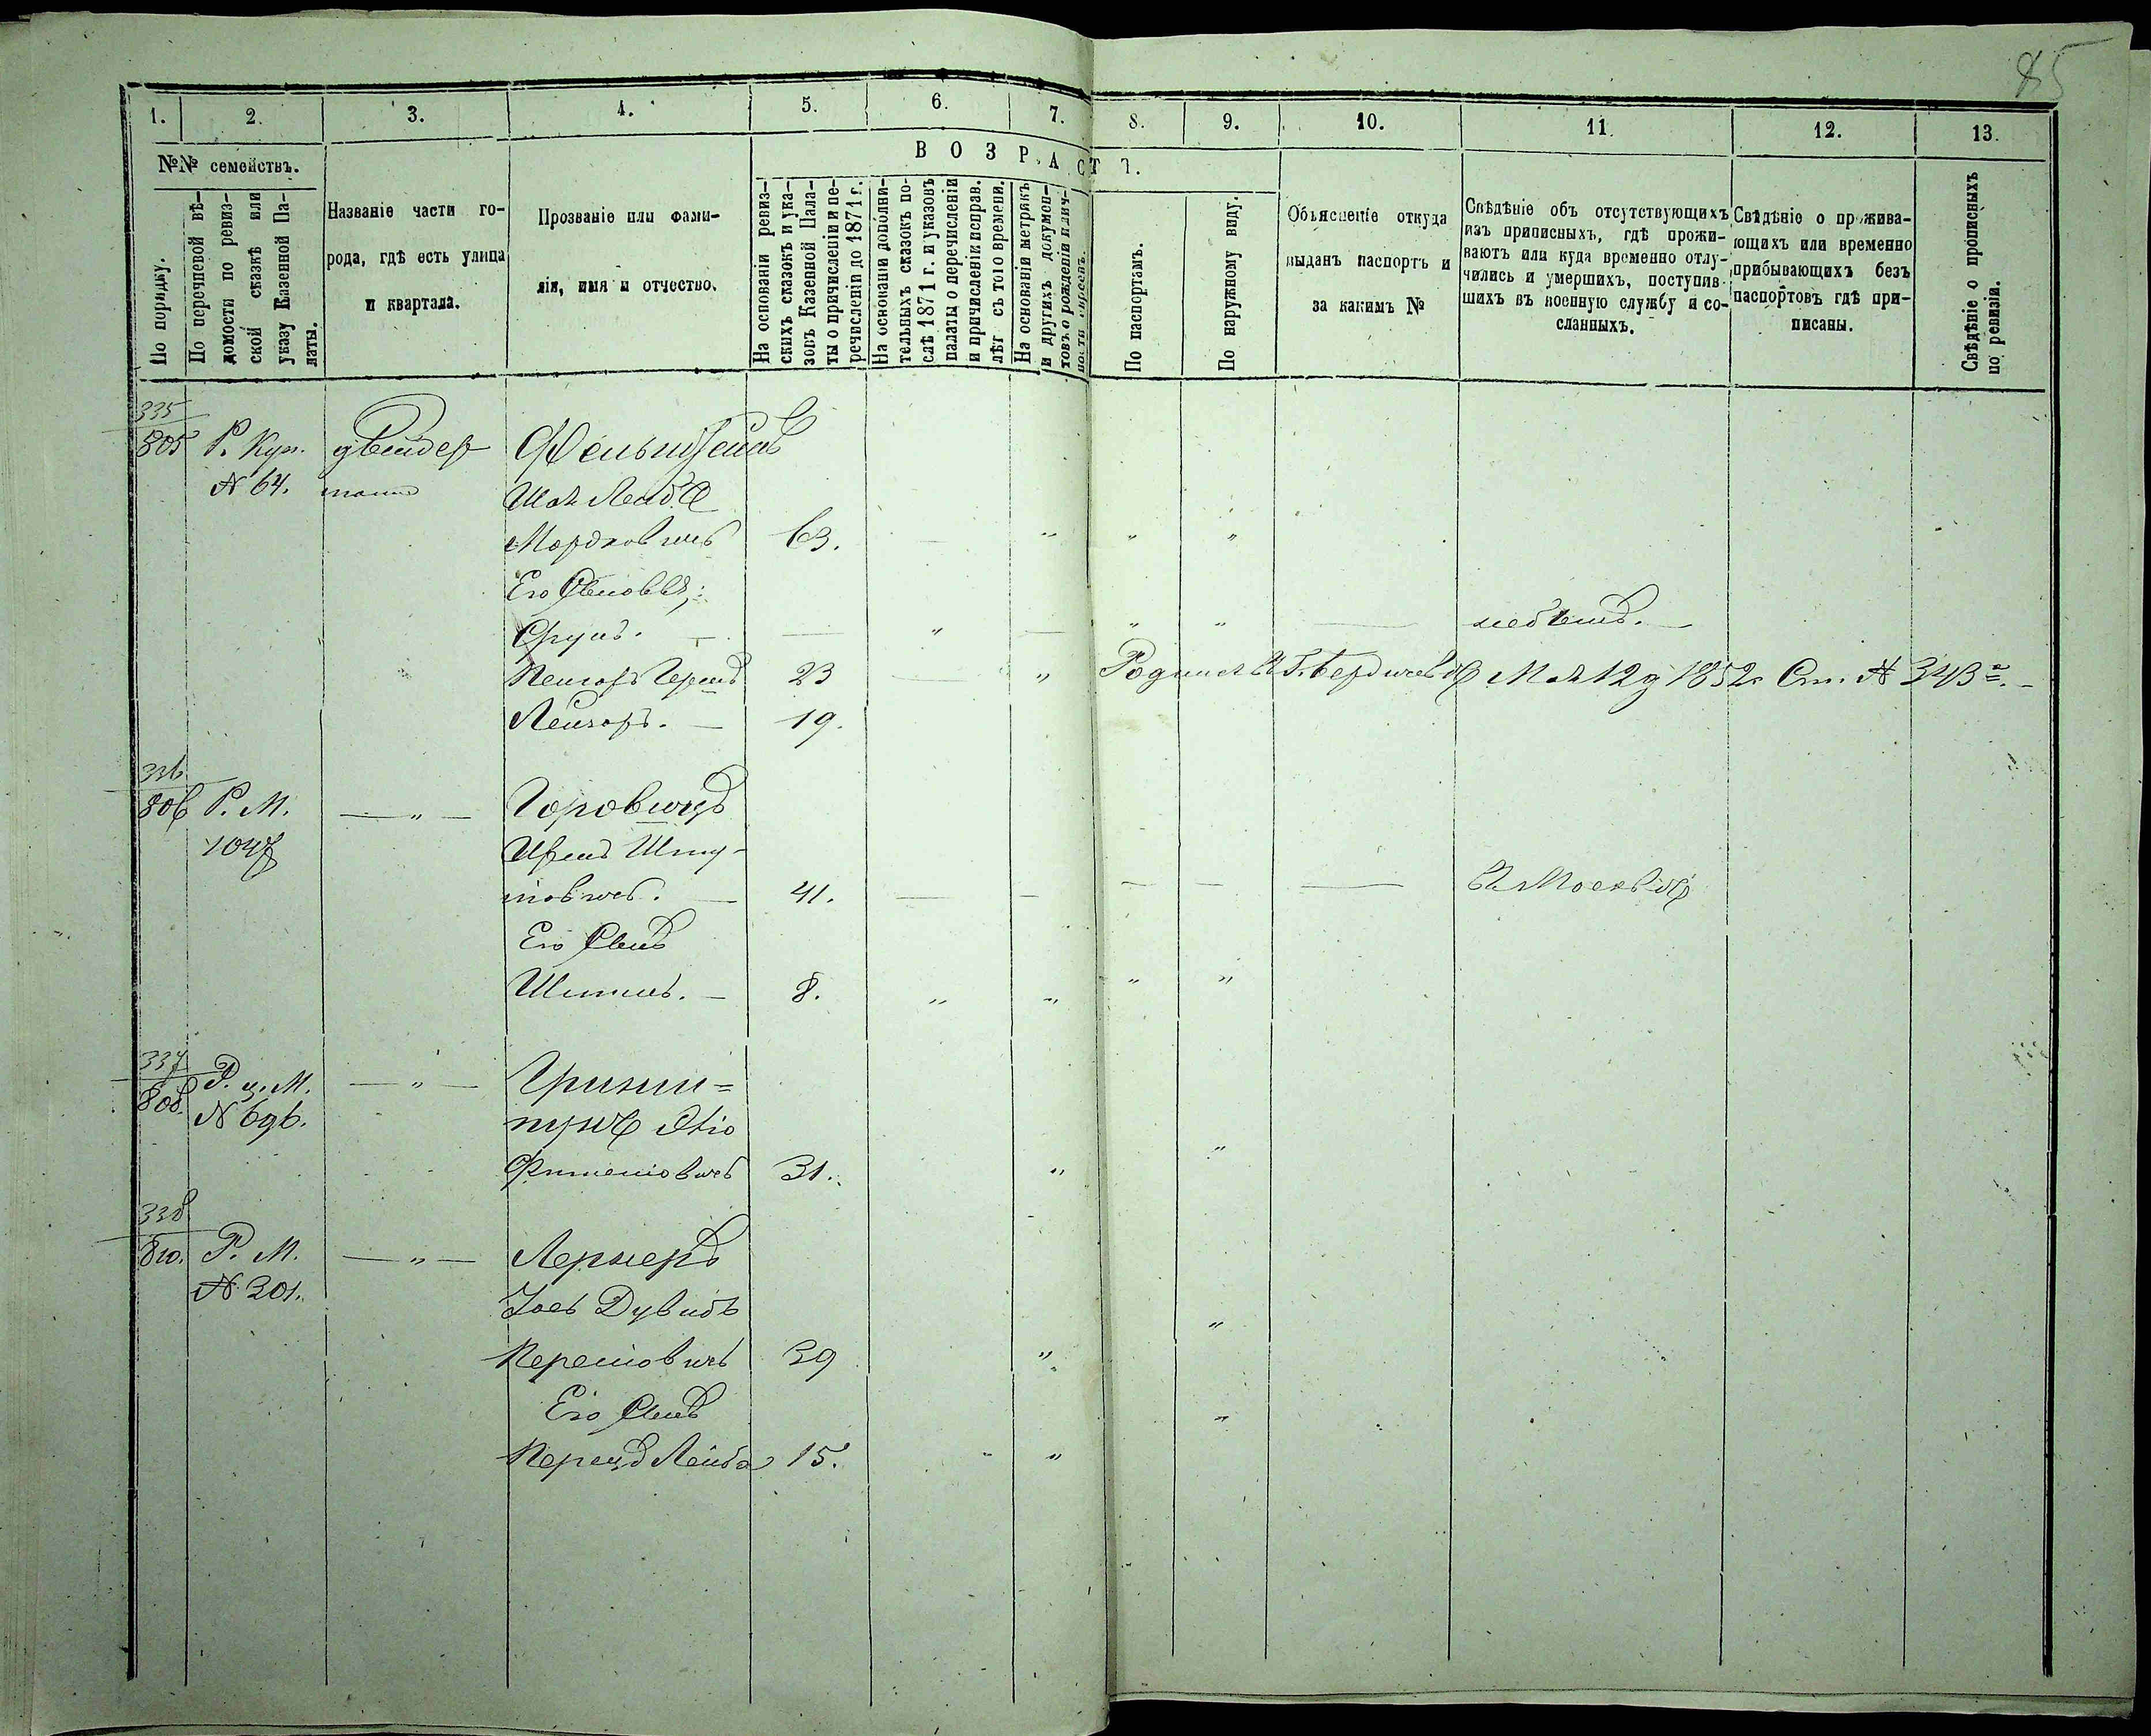 85
1. 2. 3. 4. 5. 6. 7. 8. 9. 10. 11. 12. 13.
№№ семействъ.
По порядку.
По перечневой вѣ-
домости по ревиз-
ской сказкѣ или
указу Казенной Па-
латы.
Названіе части го-
рода, гдѣ есть улица
и квартала.
Прозваніе или фами-
лія, имя и отчество.
ВОЗРАСТЪ.
На основаніи ревиз-
скихъ сказокъ и ука-
зовъ Казенной Пала-
ты о причисленіи и пе-
речисленіи до 1871 г.
На основаніи дополни-
тельныхъ сказокъ по-
слѣ 1871 г. и указовъ
палаты о перечисленіи
и причисленіи исправ.
лѣт съ того времени.
На основаніи метрикъ
и другихъ докумен-
товъ о рожденіи налич-
ности евреевъ.
По паспортамъ.
По наружному виду.
Объясненіе откуда
выданъ паспортъ и
за какимъ №
Свѣдѣніе объ отсутствующихъ
изъ приписныхъ, гдѣ прожи-
ваютъ или куда временно отлу-
чились и умершихъ, поступив-
шихъ въ военную службу и со-
сланныхъ.
Свѣдѣніе о прожива-
ющихъ или временно
прибывающихъ безъ
паспортовъ гдѣ при-
писаны.
Свѣдѣніе о прописныхъ
по ревизіи.
335
805 Р. Куп.
N 64.
Мордковичъ 63.
Его Сыновья:
Сруль. —
Герш 23 Родился в г. Бердичевѣ Мая 12 д 1852 г Ст. N 343
Лейзоръ. — 19.
336
806 Р. М. — " — Горовицъ
1047
41. Въ Москвѣ
Его Сынъ
8.
337
808. Р. ц. М. — " —
N 696.
31.
338
810. Р. М. — " — Лернеръ
N 301.
Іось Дувидъ
Перецовичъ 39
Его Сынъ
Перецъ Лейба 15.